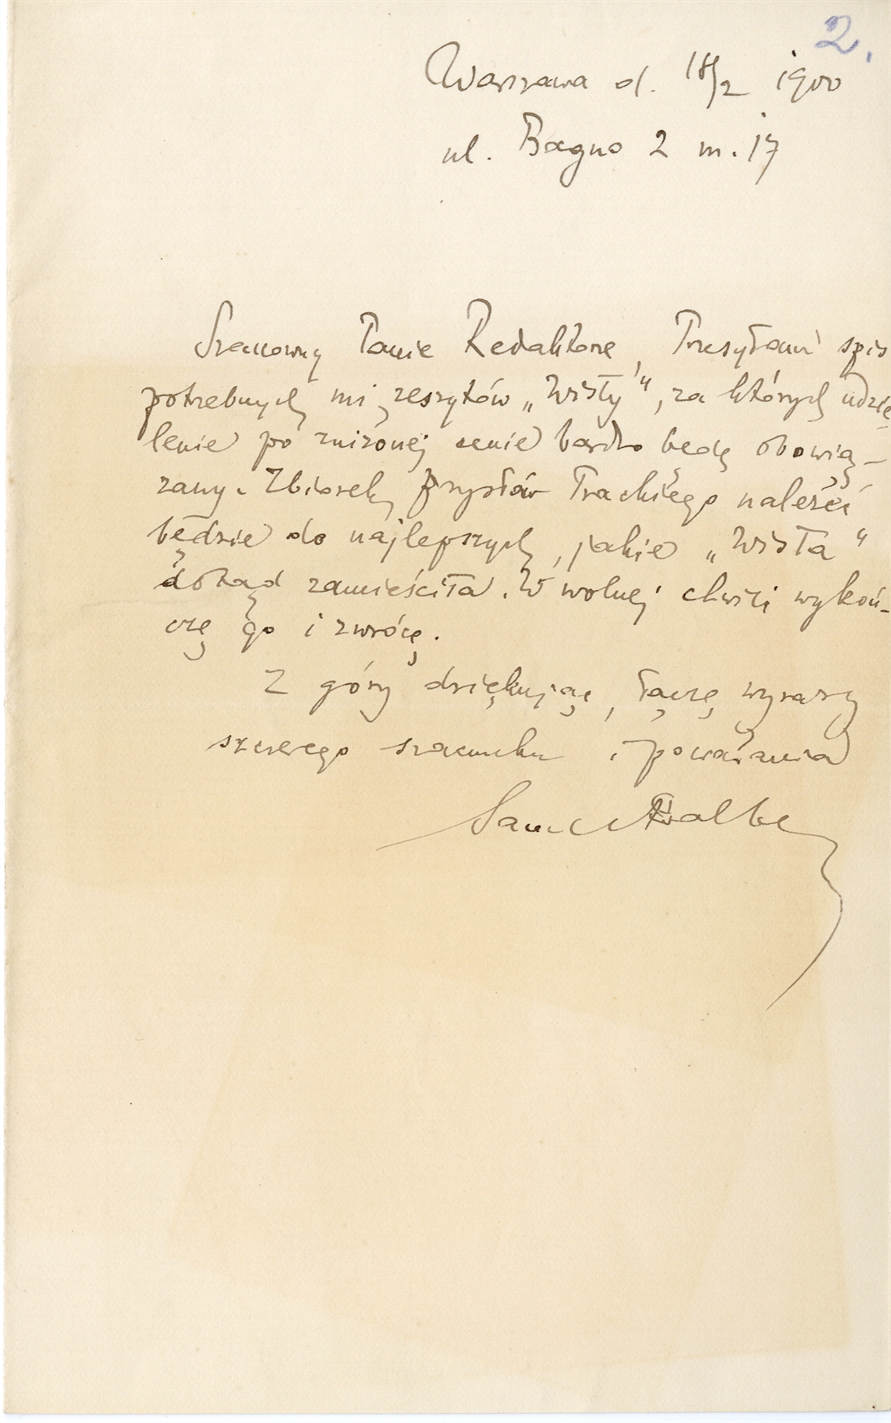 2.
Warszawa d. 18/2 1900
ul. Bagno 2 m. 17
Szanowny Panie Redaktorze, Przesyłam spis
potrzebnych mi zeszytów „Wisły", za których udzie-
lenie po zniżonej cenie bardzo będę obowią-
zany. Zbiorek przysłów Trackiego należeć
będzie do najlepszych, jakie „Wisła"
dotąd zamieściła. W wolnej chwili wykoń-
czę go i zwrócę.
Z góry dziękując, łączę wyrazy
szczerego szacunku i poważania
Samuel Adalberg